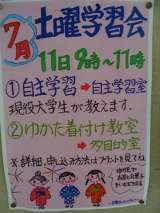 7月
土曜学習会
11日9時〜11時
①自主学習➡自主学習室
現役大学生が教えます。
②ゆかた着付け教室
➡多目的室
※詳細、申し込み方法はプリントを見てね